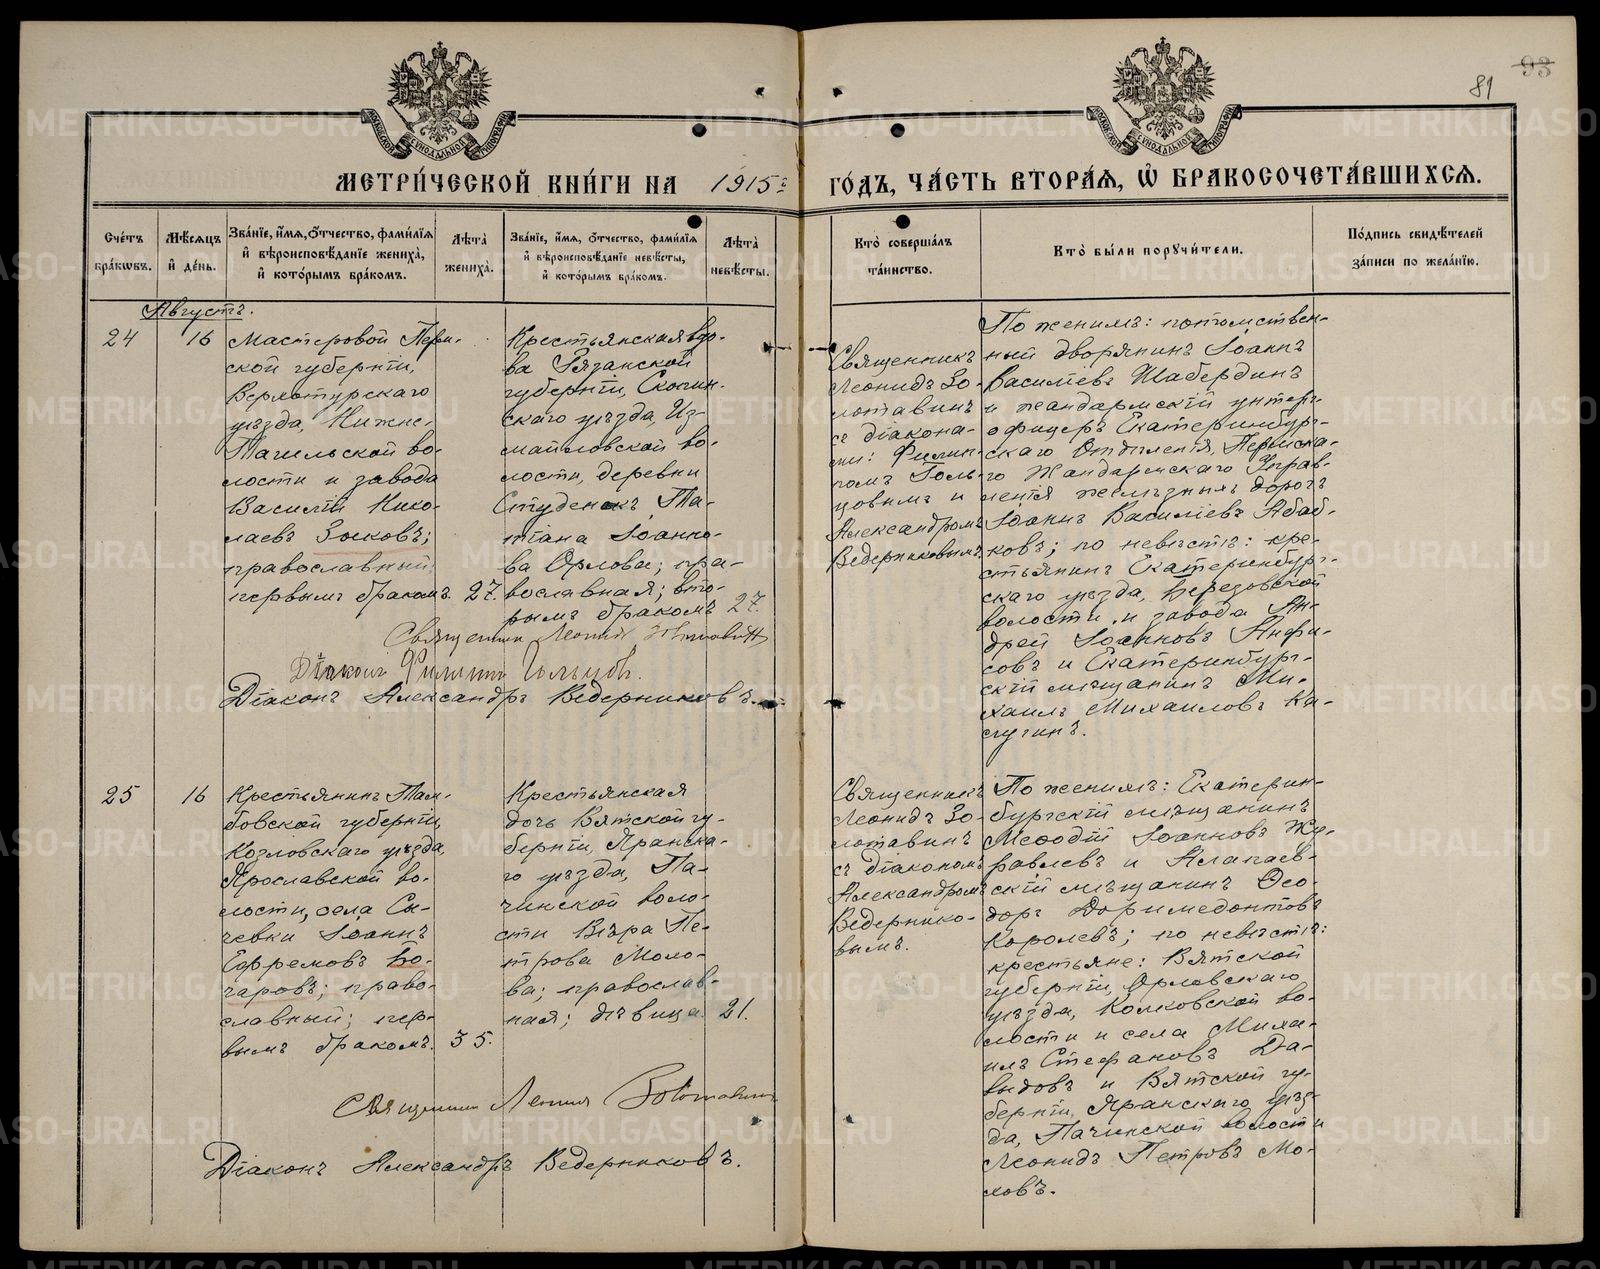 93
81
МЕТРИ́ЧЕСКОЙ КНИ́ГИ НА 1915 ГО́ДЪ, ЧА́СТЬ ВТОРА́Я, Ѽ БРАКОСОЧЕТА́ВШИХСЯ.
Сче́тъ бра́ковъ.
Мѣ́сяцъ и де́нь.
Зва́ніе, и́мя, о́тчество, фами́лія
и вѣроисповѣ́даніе жениха̀,
и кото́рымъ бра́комъ.
Лѣта̀ жениха̀.
Зва́ніе, и́мя, о́тчество, фами́лія
и вѣроисповѣ́даніе невѣ́сты,
и кото́рымъ бра́комъ.
Лѣта̀ невѣ́сты.
Кто̀ соверша́лъ
та́инство.
Кто̀ бы́ли поручи́тели.
По́дпись свидѣ́телей
за́писи по жела́нію.
Августъ.
24
16
Мастеровой Перм-
ской губерніи,
Верхотурскаго
уѣзда, Нижне-
Тагильской во-
лости и завода
Василій Нико-
лаевъ Зыковъ;
православный;
первымъ бракомъ.
27.
Крестьянская вдо-
ва Рязанской
губерніи, Скопин-
скаго уѣзда, Из-
майловской во-
лости, деревни
Студенокъ Та-
тіана Іоанно-
ва Орлова; пра-
вославная; вто-
рымъ бракомъ
27.
Священникъ
Леонидъ Зо-
лотавинъ
съ діакона-
ми: Филип-
помъ Голь-
цовымъ и
Александромъ
Ведерниковымъ
По женихѣ: потомствен-
ный дворянинъ Іоаннъ
Василіевъ Шабердинъ
и жандармскій унтеръ-
офицеръ Екатеринбург-
скаго Отдѣленія, Пермска-
го Жандармскаго Управ-
ленія желѣзныхъ дорогъ
Іоаннъ Василіевъ Абаб-
ковъ; по невѣстѣ: кре-
стьянинъ Екатеринбург-
скаго уѣзда, Березовской
волости и завода Ан-
дрей Іоанновъ Анфи-
совъ и Екатеринбург-
скій мѣщанинъ Ми-
хаилъ Михаиловъ Ка-
слугинъ.
Священникъ Леонидъ Золотавинъ
Діаконъ Филиппъ Гольцовъ.
Діаконъ Александръ Ведерниковъ.
25
16
Крестьянинъ Там-
бовской губерніи,
Козловскаго уѣзда,
Ярославской во-
лости, села Сы-
чевки Іоаннъ
Ефремовъ Бо-
чаровъ; право-
славный; пер-
вымъ бракомъ.
35.
Крестьянская
дочь Вятской гу-
берніи, Яранска-
го уѣзда, Па-
чинской воло-
сти Вѣра Пе-
трова Мохо-
ва; православ-
ная; дѣвица.
21.
Священникъ
Леонидъ Зо-
лотавинъ
съ діакономъ
Александромъ
Ведернико-
вымъ.
По женихѣ: Екатерин-
бургскій мѣщанинъ
Меѳодій Іоанновъ Жу-
равлевъ и Алапаев-
скій мѣщанинъ Ѳео-
доръ Доримедонтовъ
Королевъ; по невѣстѣ:
крестьяне: Вятской
губерніи, Орловскаго
уѣзда, Колковской во-
лости и села Миха-
илъ Стефановъ Да-
выдовъ и Вятской гу-
берніи, Яранскаго уѣз-
да, Пачинской волости
Леонидъ Петровъ Мо-
ховъ.
Священникъ Леонидъ Золотавинъ
Діаконъ Александръ Ведерниковъ.
METRIKI.GASO-URAL.RU